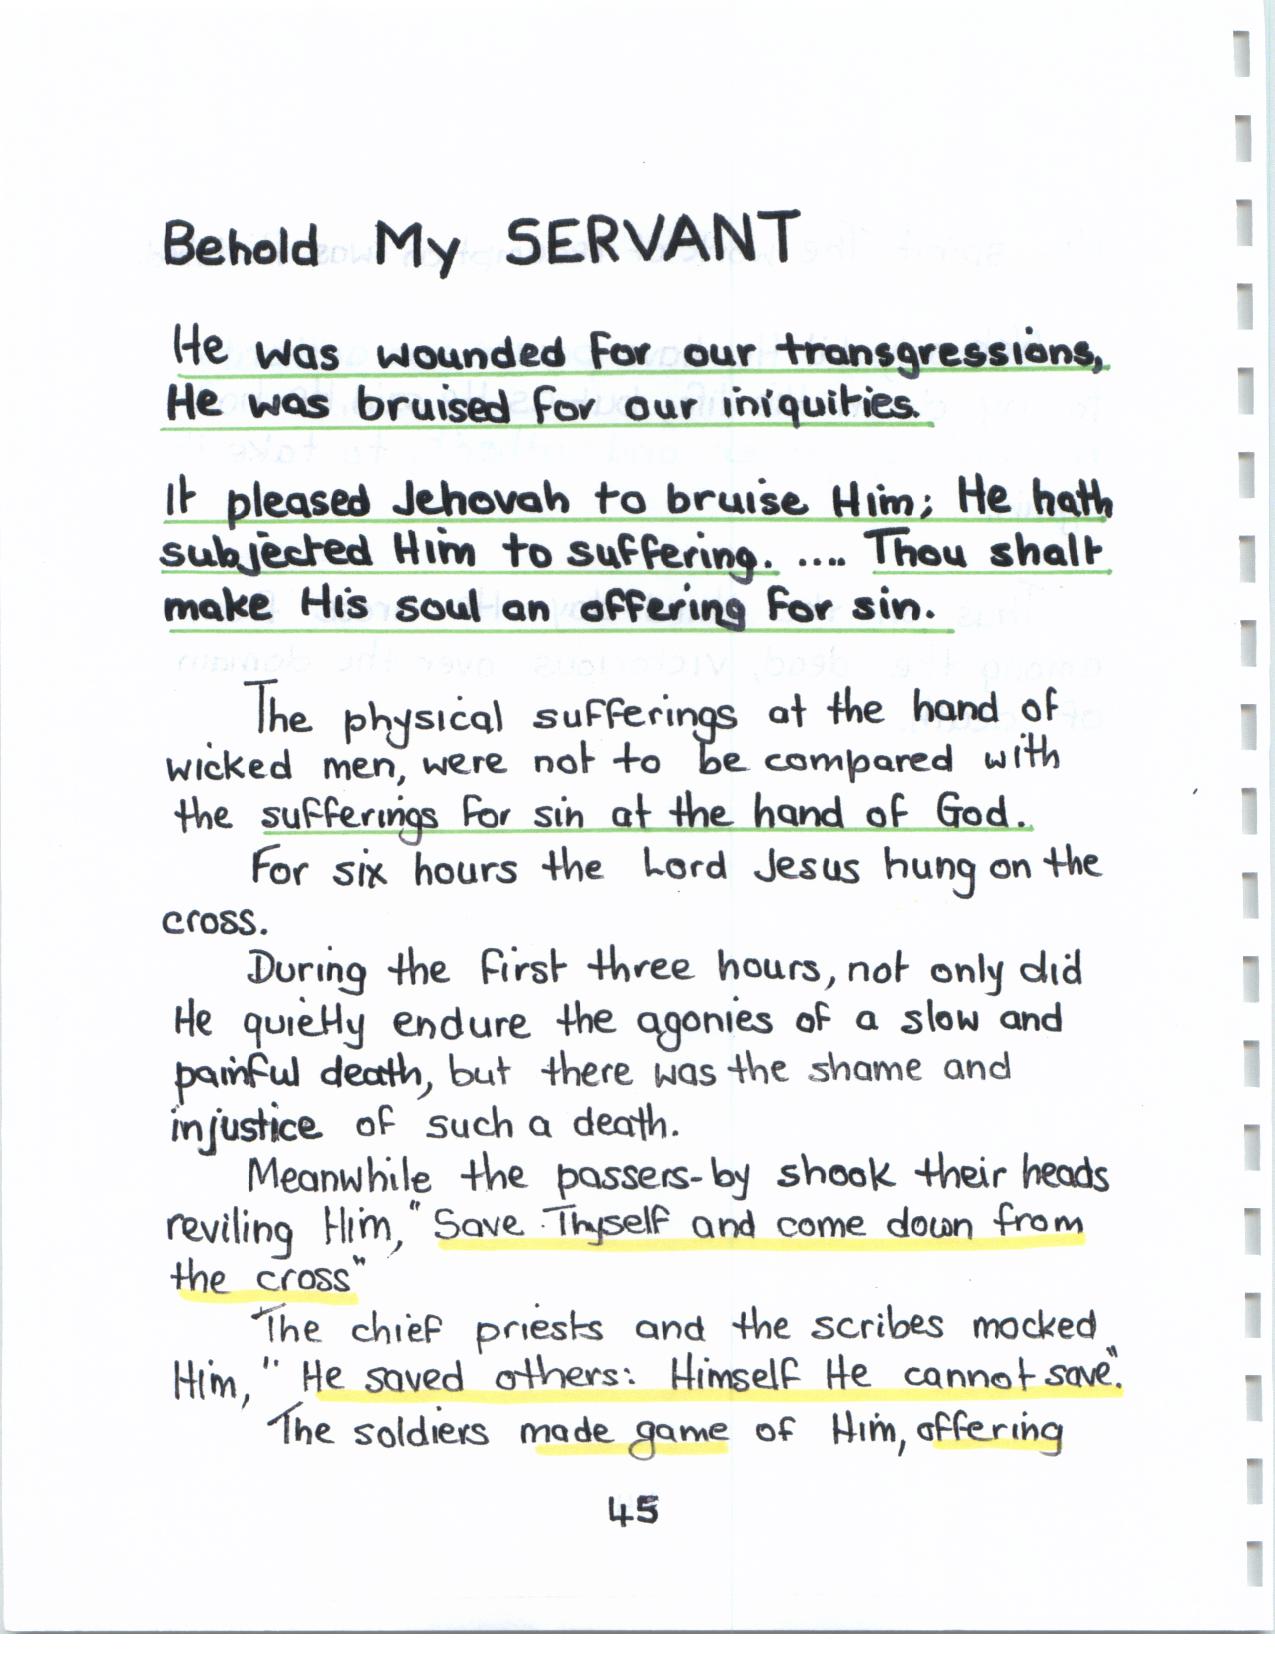 Behold My SERVANT
He was wounded for our transgressions,
He was bruised for our iniquities.
It pleased Jehovah to bruise Him; He hath
subjected Him to suffering. .... Thou shalt
make His soul an offering for sin.
The physical sufferings at the hand of
wicked men, were not to be compared with
the sufferings for sin at the hand of God.
For six hours the Lord Jesus hung on the
cross.
During the first three hours, not only did
He quietly endure the agonies of a slow and
painful death, but there was the shame and
injustice of such a death.
Meanwhile the passers-by shook their heads
reviling Him, "Save Thyself and come down from
the cross"
The chief priests and the scribes mocked
Him, "He saved others: Himself He cannot save".
The soldiers made game of Him, offering
45